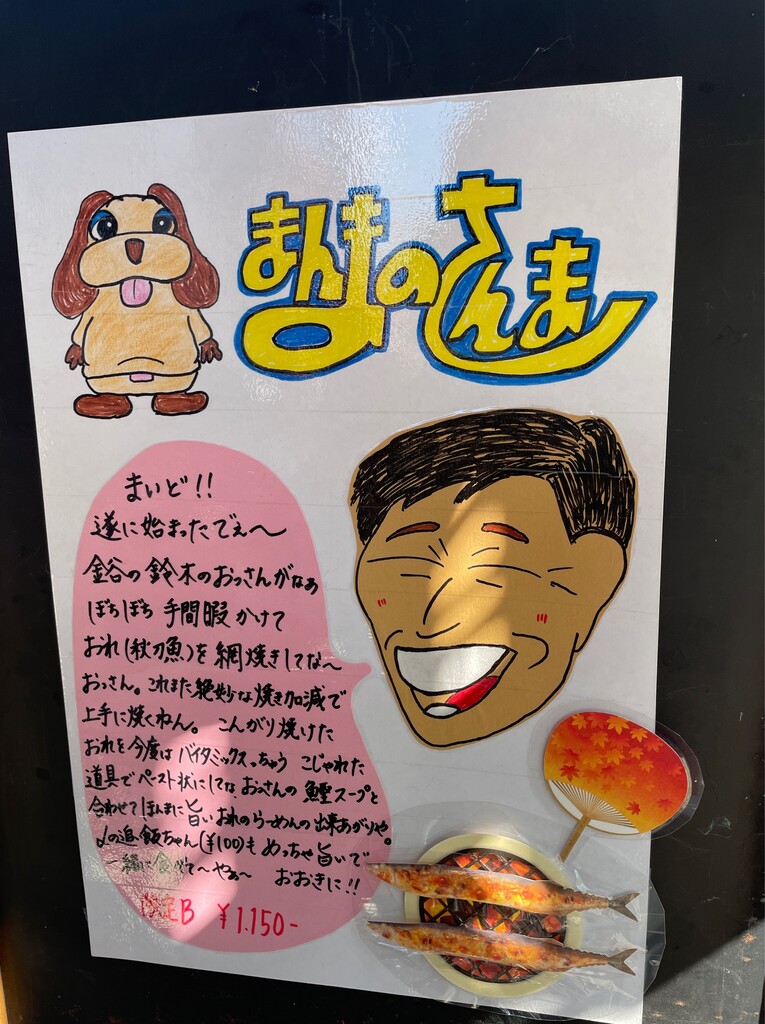 まんまのさんま
まいど!!
遂に始まったでぇ〜
金谷の鈴木のおっさんがなぁ
ぼちぼち 手間暇かけて
おれ(秋刀魚)を網焼きしてな〜
おっさん。これまた絶妙な焼き加減で
上手に焼くねん。こんがり焼けた
おれを今度はバイタミックスっちゅう こじゃれた
道具でペースト状にしてな おっさんの 鰹スープと
合わせてほんまに旨いおれのらーめんの出来あがりや。
〆の追飯ちゃん(¥100)も めっちゃ旨いで
一緒に食べて〜やぁ〜 おおきに!!
限定B ¥1.150-